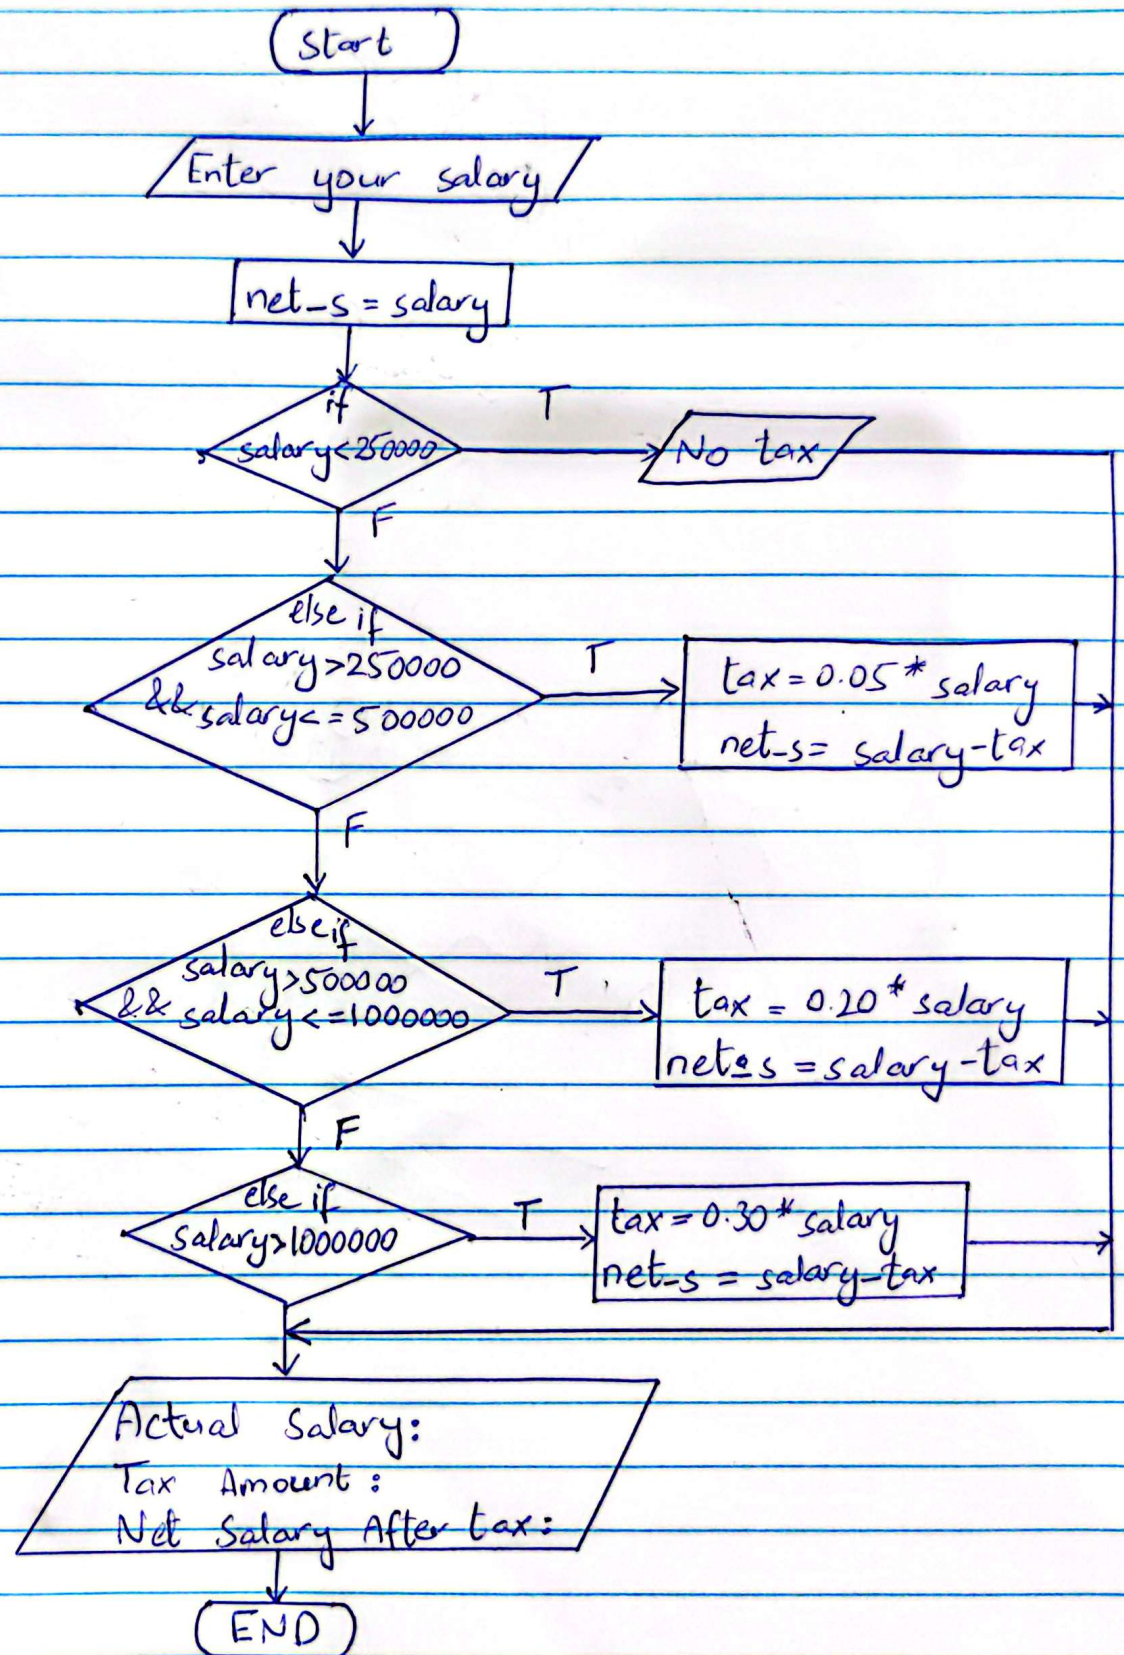 Start
Enter your salary
net_s = salary
if
salary<250000
T
No tax
F
else if
salary>250000
&& salary<=500000
T
tax=0.05* salary
net_s= salary-tax
F
else if
salary>500000
&& salary<=1000000
T
tax = 0.20* salary
net_s = salary-tax
F
else if
salary>1000000
T
tax=0.30* salary
net_s = salary-tax
Actual Salary:
Tax Amount:
Net Salary After tax:
END